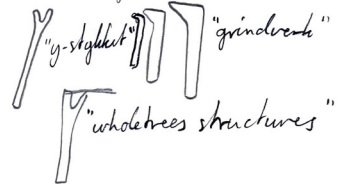 "y-stykket"
"grindverk"
"wholetrees structures"